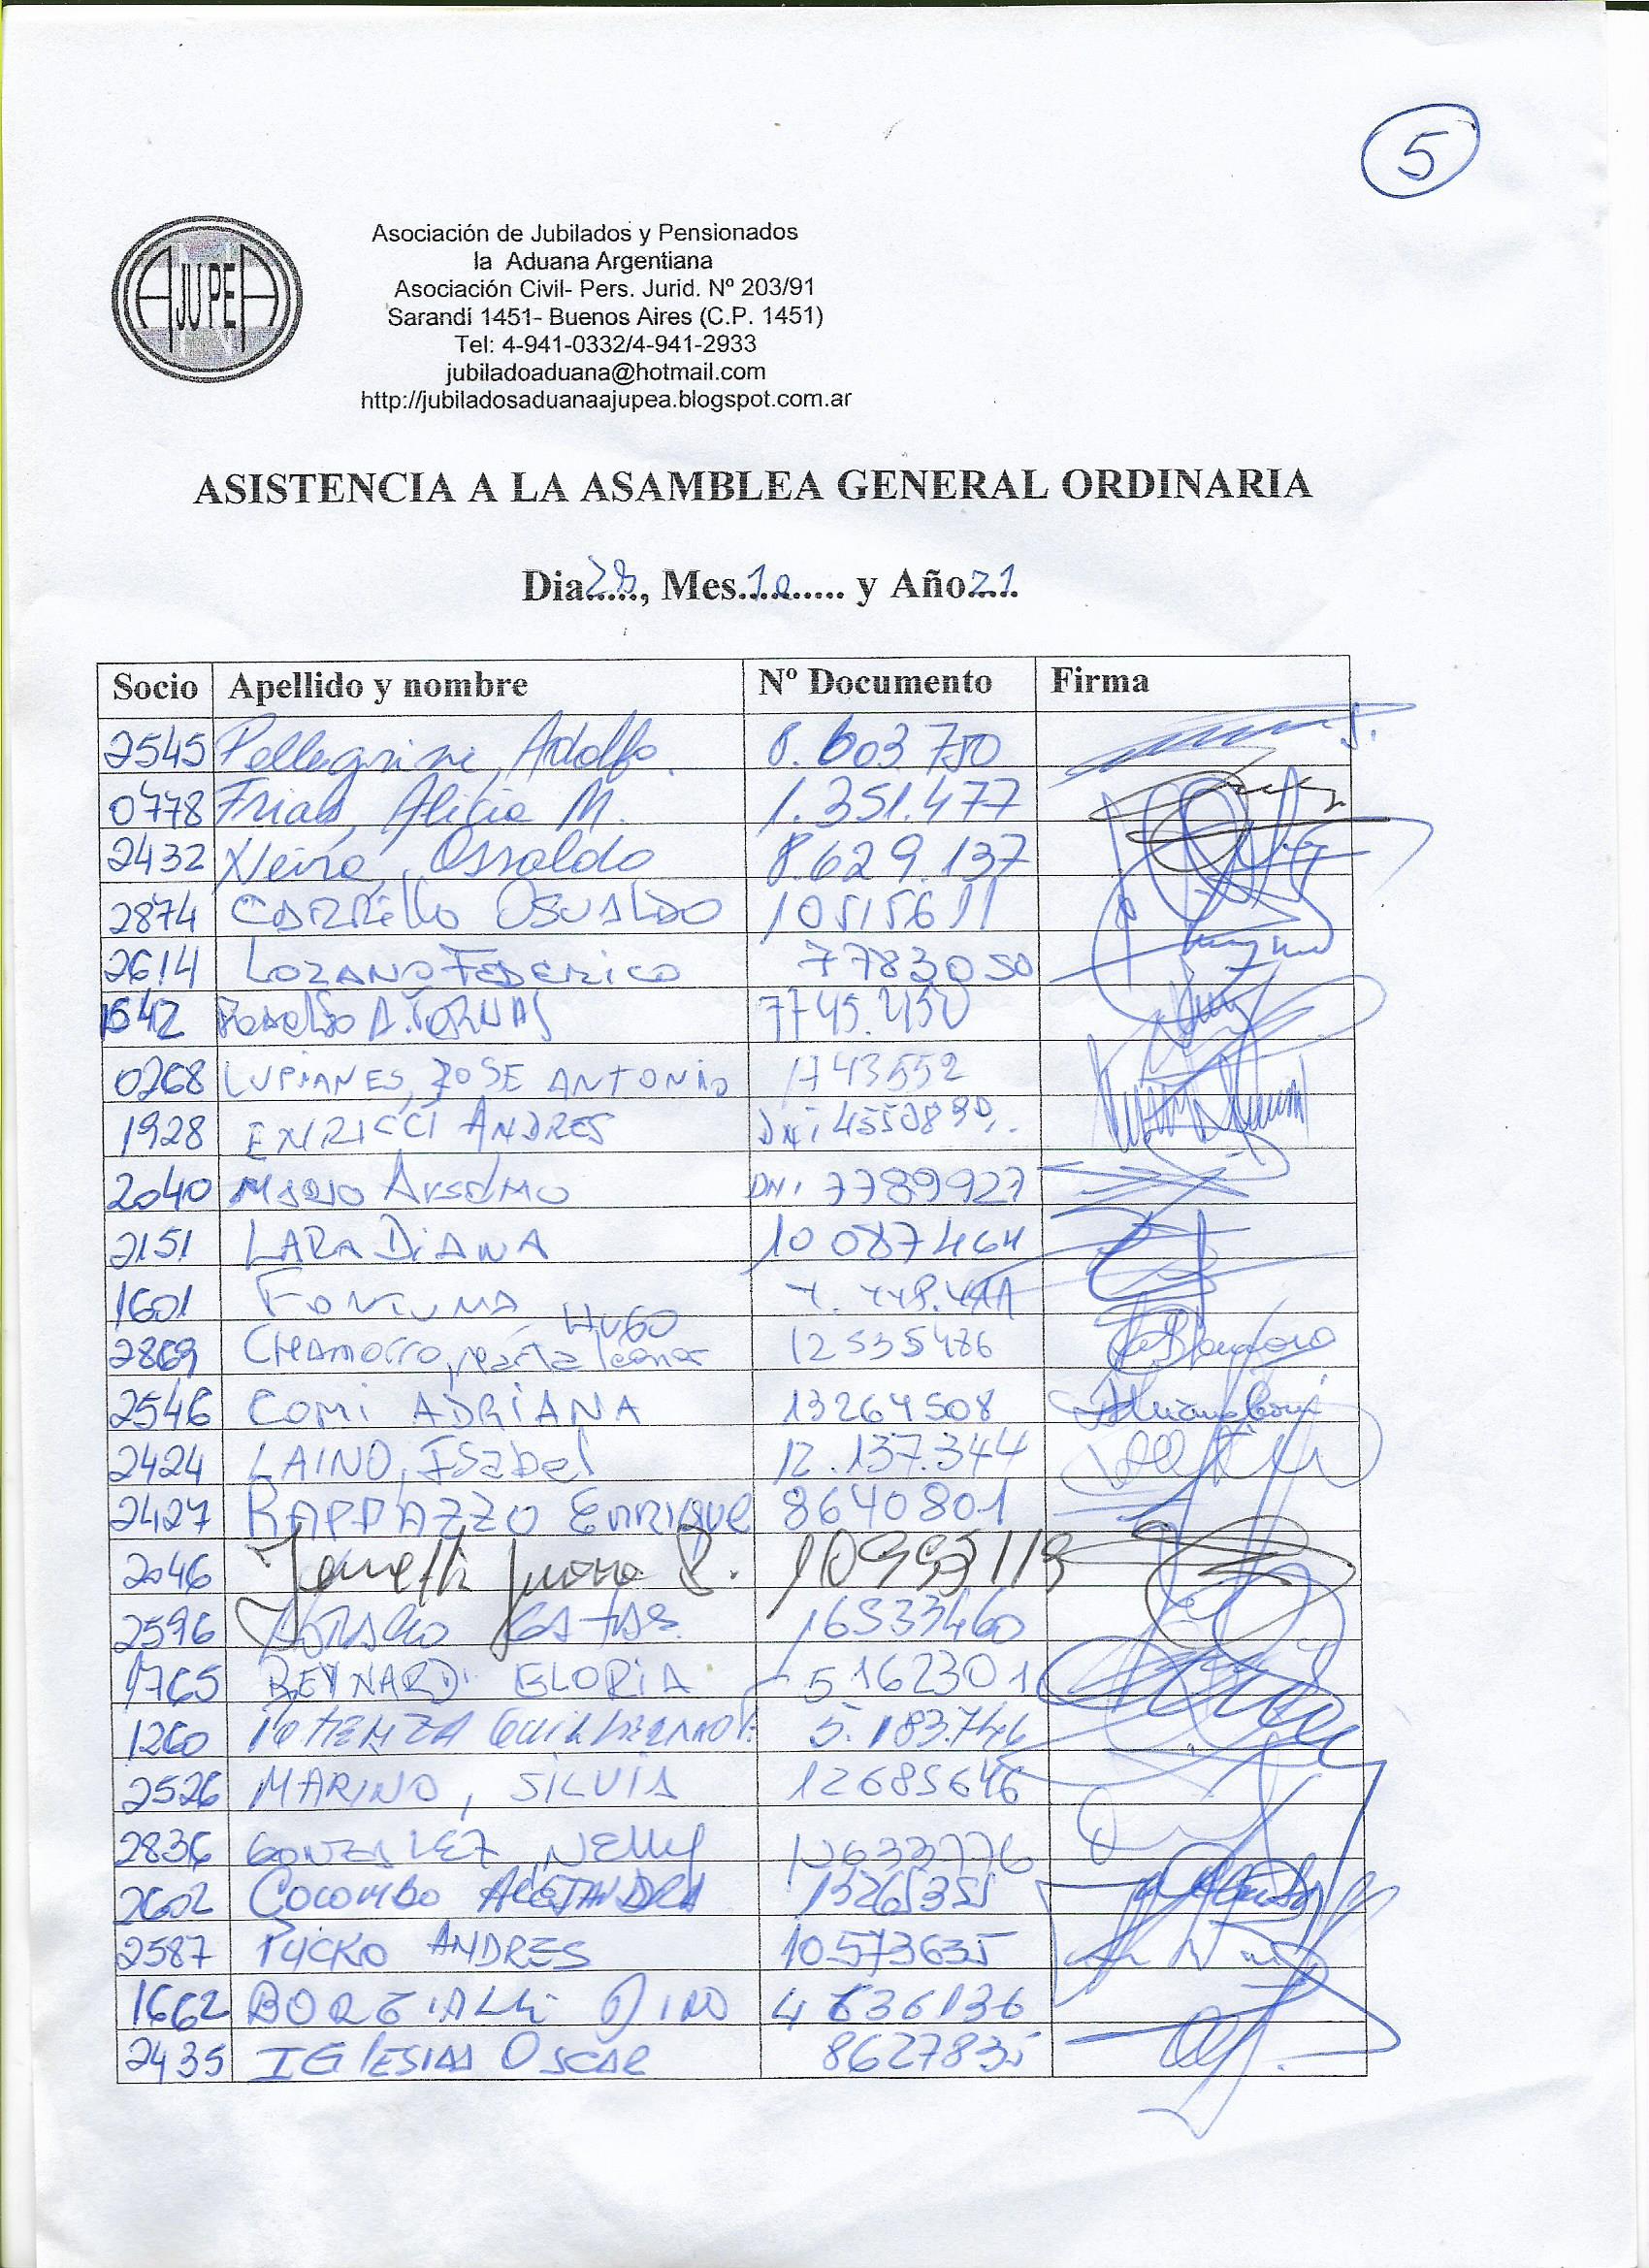 5
AJUPEA
Asociación de Jubilados y Pensionados
la Aduana Argentiana
Asociación Civil- Pers. Jurid. Nº 203/91
Sarandí 1451- Buenos Aires (C.P. 1451)
Tel: 4-941-0332/4-941-2933
jubiladoaduana@hotmail.com
http://jubiladosaduanaajupea.blogspot.com.ar
ASISTENCIA A LA ASAMBLEA GENERAL ORDINARIA
Dia 28, Mes 10 y Año 21
Socio Apellido y nombre Nº Documento Firma
2545 Pellegrini, Adolfo. 8.603750
0778 Frias, Alicia M. 1.351.477
2432 Neira, Osvaldo 8.629.137
2874 CARRILLO OSVALDO 10515611
2614 LOZANO FEDERICO 7783050
1642
0268 LUPIANES, JOSE ANTONIO 1743552
1928 ENRICCI ANDRES DNI
2040 MARIO ANSELMO DNI 7789927
2151 LARA DIANA 10087464
1601 HUGO
2869 CHAMORRO, marta leonor 12535486
2546 COMI ADRIANA 13264508
2424 LAINO, ISabel 12.137.344
2427 RAPPAZZO ENRIQUE 8640801
2046 Juana
2596 16533460
1765 REYNARDI GLORIA 5162301
1260 POTENZA GUILLERMO 5.183.746
2526 MARINO, SILVIA 12685646
2836 GONZALEZ NELLY 12633776
2602 COLOMBO ALEJANDRA 13265355
2587 PUCKO ANDRES 10573635
1662 DINO
2435 IGLESIAS OSCAR 8627835